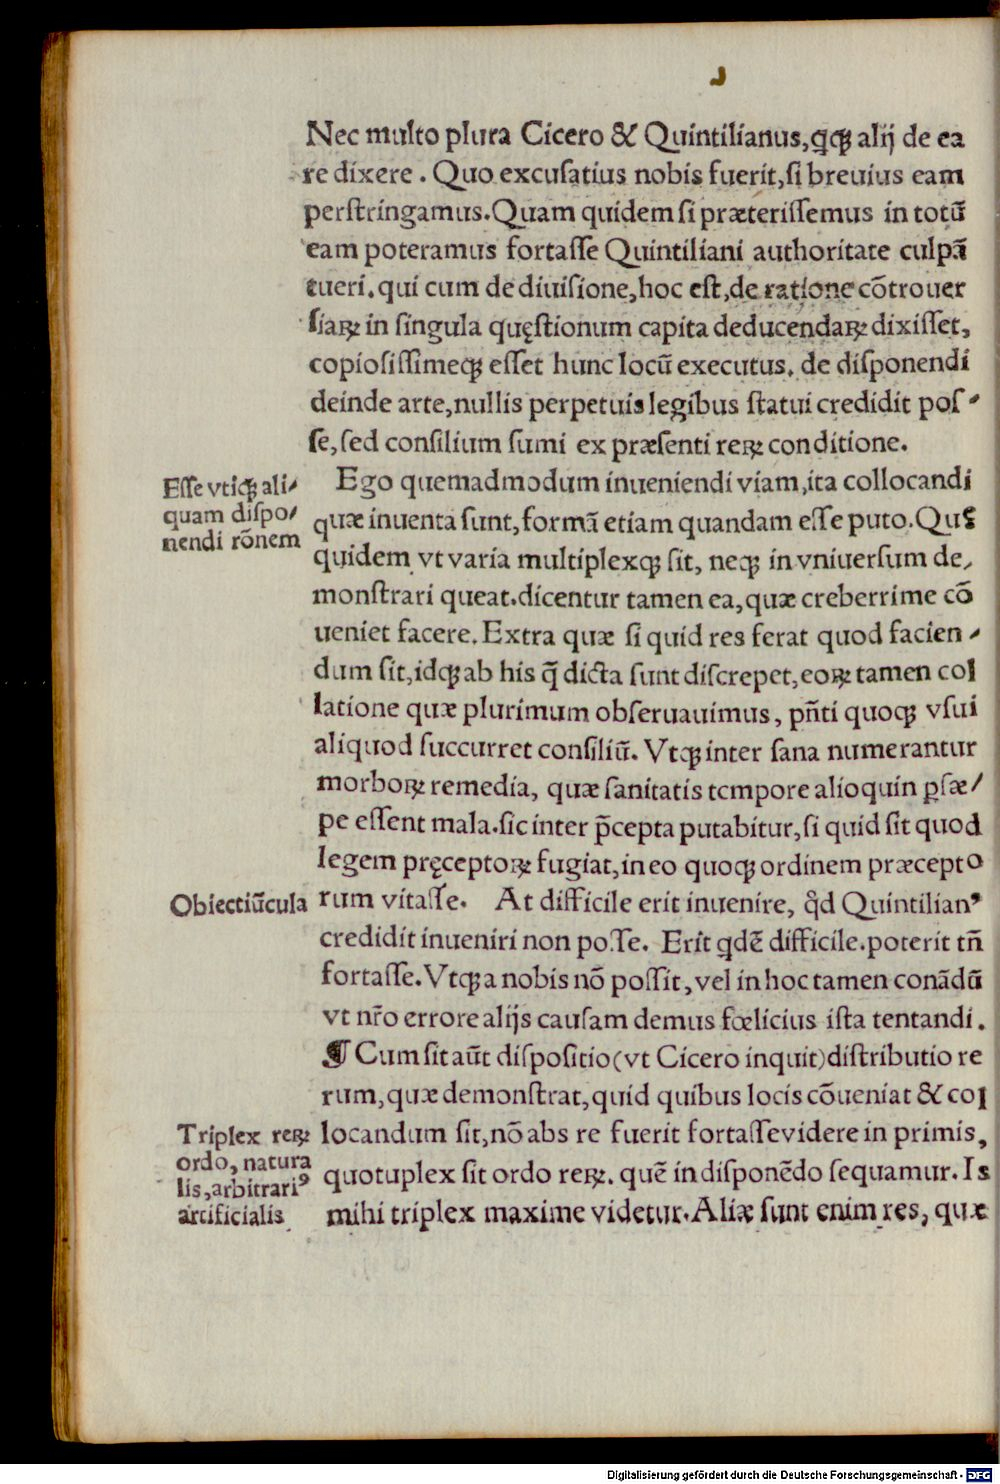 Nec multo plura Cicero & Quintilianus, qꝗ alij de ea
re dixere. Quo excusatius nobis fuerit, si breuius eam
perstringamus. Quam quidem si præterissemus in totũ
eam poteramus fortasse Quintiliani authoritate culpã
tueri. qui cum de diuisione, hoc est, de ratione cõtrouer
siaꝝ in singula quęstionum capita deducendaꝝ dixisset,
copiosissimeqꝫ esset hunc locũ executus. de disponendi
deinde arte, nullis perpetuis legibus statui credidit pos-
se, sed consilium sumi ex præsenti reꝝ conditione.
Esse vtiqꝫ ali/
quam dispo/
nendi rõnem
Ego quemadmodum inueniendi viam, ita collocandi
quæ inuenta sunt, formã etiam quandam esse puto. Quę
quidem vt varia multiplexqꝫ sit, neqꝫ in vniuersum de/
monstrari queat. dicentur tamen ea, quæ creberrime cõ
ueniet facere. Extra quæ si quid res ferat quod facien-
dum sit, idqꝫ ab his q̃ dicta sunt discrepet, eoꝝ tamen col
latione quæ plurimum obseruauimus, pñti quoqꝫ vsui
aliquod succurret consiliũ. Vtqꝫ inter sana numerantur
morboꝝ remedia, quæ sanitatis tempore alioquin ꝑsæ/
pe essent mala. sic inter p̃cepta putabitur, si quid sit quod
legem pręceptoꝝ fugiat, in eo quoqꝫ ordinem præcepto
Obiectiũcula
rum vitasse. At difficile erit inuenire, qd̃ Quintilianꝰ
credidit inueniri non posse. Erit qdẽ difficile. poterit tñ
fortasse. Vtqꝫ a nobis nõ possit, vel in hoc tamen conãdũ
vt nr̃o errore alijs causam demus fœlicius ista tentandi.
¶ Cum sit aũt dispositio (vt Cicero inquit) distributio re
rum, quæ demonstrat, quid quibus locis cõueniat & col
Triplex reꝝ
ordo, natura
lis, arbitrariꝰ
artificialis
locandum sit, nõ abs re fuerit fortasse videre in primis,
quotuplex sit ordo reꝝ. quẽ in disponẽdo sequamur. Is
mihi triplex maxime videtur. Aliæ sunt enim res, quæ
Digitalisierung gefördert durch die Deutsche Forschungsgemeinschaft - DFG